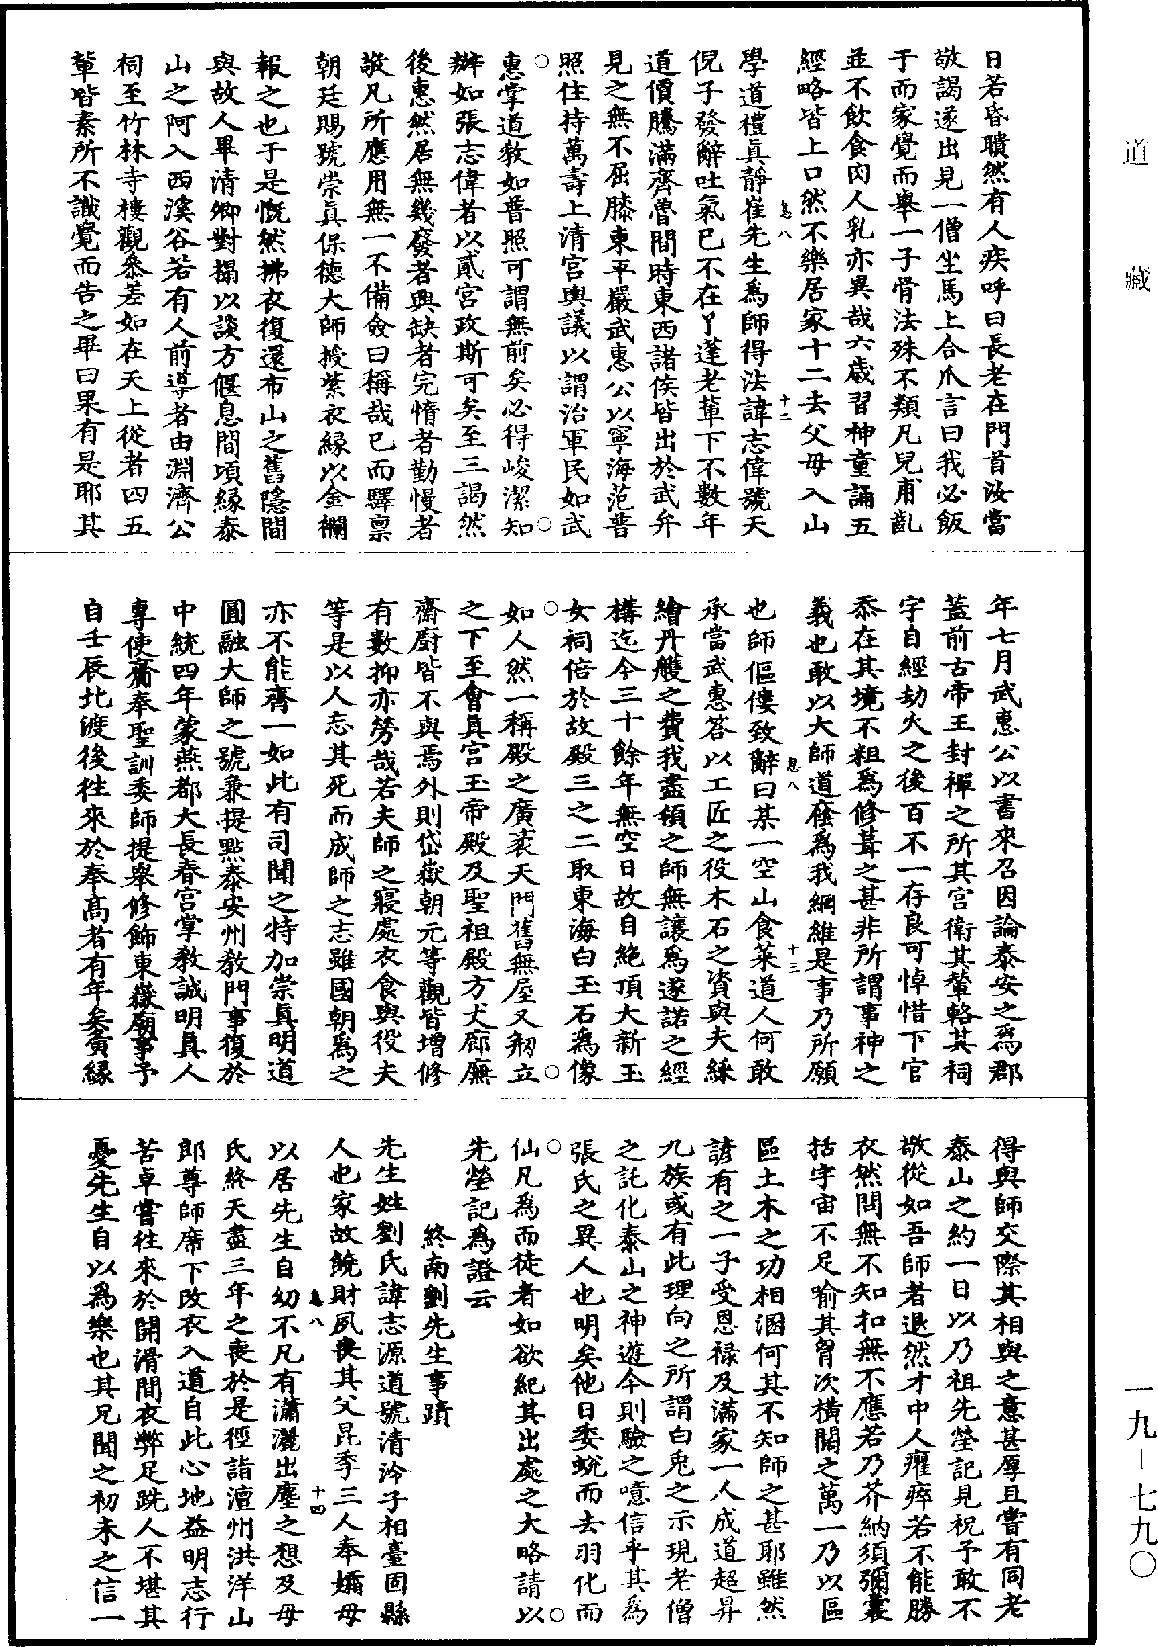 道藏
日若昏瞶然有人疾呼曰長老在門首汝當
敬謁遂出見一僧坐馬上合爪言曰我必飯
于而家覺而舉一子骨法殊不類凡兒甫齓
並不飲食肉人乳亦異哉六歲習神童誦五
經略皆上口然不樂居家十二去父母入山
學道禮真靜崔先生為師得法諱志偉號天
倪子發辭吐氣已不在丫蓬老輩下不數年
道價騰滿齊魯間時東西諸侯皆出於武弁
見之無不屈膝東平嚴武惠公以寧海范普
照住持萬壽上清宮輿議以謂治軍民如武
惠掌道教如普照可謂無前矣必得峻潔知
辦如張志偉者以貳宮政斯可矣至三謁然
後惠然居無幾發者興缺者完惰者勤慢者
敬凡所應用無一不備僉曰稱哉已而驛稟
朝廷賜號崇真保德大師授紫衣緣以金襴
報之也于是慨然拂衣復還布山之舊隱間
與故人畢清卿對榻以談方偃息間頃緣泰
山之阿入西溪谷若有人前導者由淵濟公
祠至竹林寺樓觀參差如在天上從者四五
輩皆素所不識覺而告之畢曰果有是耶其
年七月武惠公以書來召因論泰安之為郡
蓋前古帝王封禪之所其宮衛其輦輅其祠
宇自經劫火之後百不一存良可悼惜下官
忝在其境不粗為修葺之甚非所謂事神之
義也敢以大師道廕為我綱維是事乃所願
也師傴僂致辭曰某一空山食菜道人何敢
承當武惠答以工匠之役木石之資與夫綵
繪丹艧之費我盡領之師無讓為遂諾之經
構迄今三十餘年無空日故自絕頂大新玉
女祠倍於故殿三之二取東海白玉石為像
如人然一稱殿之廣袤天門舊無屋又刱立
之下至會真宮玉帝殿及聖祖殿方丈廊廡
齋廚皆不與焉外則岱嶽朝元等觀皆增修
有數抑亦勞哉若夫師之寢處衣食與役夫
等是以人忘其死而成師之志雖國朝為之
亦不能齊一如此有司聞之特加崇真明道
圓融大師之號兼提點泰安州教門事復於
中統四年蒙燕都大長春宮掌教誠明真人
專使齎奉聖訓委師提舉修飾東嶽廟事予
自壬辰北渡後往來於奉高者有年矣夤緣
得與師交際其相與之意甚厚且嘗有同老
泰山之約一日以乃祖先塋記見祝予敢不
敬從如吾師者退然才中人癯瘁若不能勝
衣然問無不知扣無不應若乃芥納須彌囊
括宇宙不足喻其胷次橫闊之萬一乃以區
區土木之功相溷何其不知師之甚耶雖然
諺有之一子受恩祿及滿家一人成道超昇
九族或有此理向之所謂白兎之示現老僧
之託化泰山之神遊今則驗之噫信乎其為
張氏之異人也明矣他日委蛻而去羽化而
仙凡為而徒者如欲紀其出處之大略請以
先塋記為證云
終南劉先生事蹟
先生姓劉氏諱志源道號清泠子相臺固縣
人也家故饒財夙喪其父昆季三人奉孀母
以居先生自幼不凡有瀟灑出塵之想及母
氏終天盡三年之喪於是徑詣澶州洪洋山
郎尊師席下改衣入道自此心地益明志行
苦卓嘗往來於開滑間衣弊足跣人不堪其
憂先生自以為樂也其兄聞之初未之信一
一九－七九〇